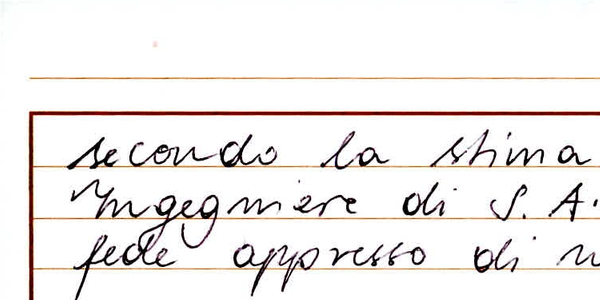 secondo la stima
Ingegniere di S. A.
fede appresso di